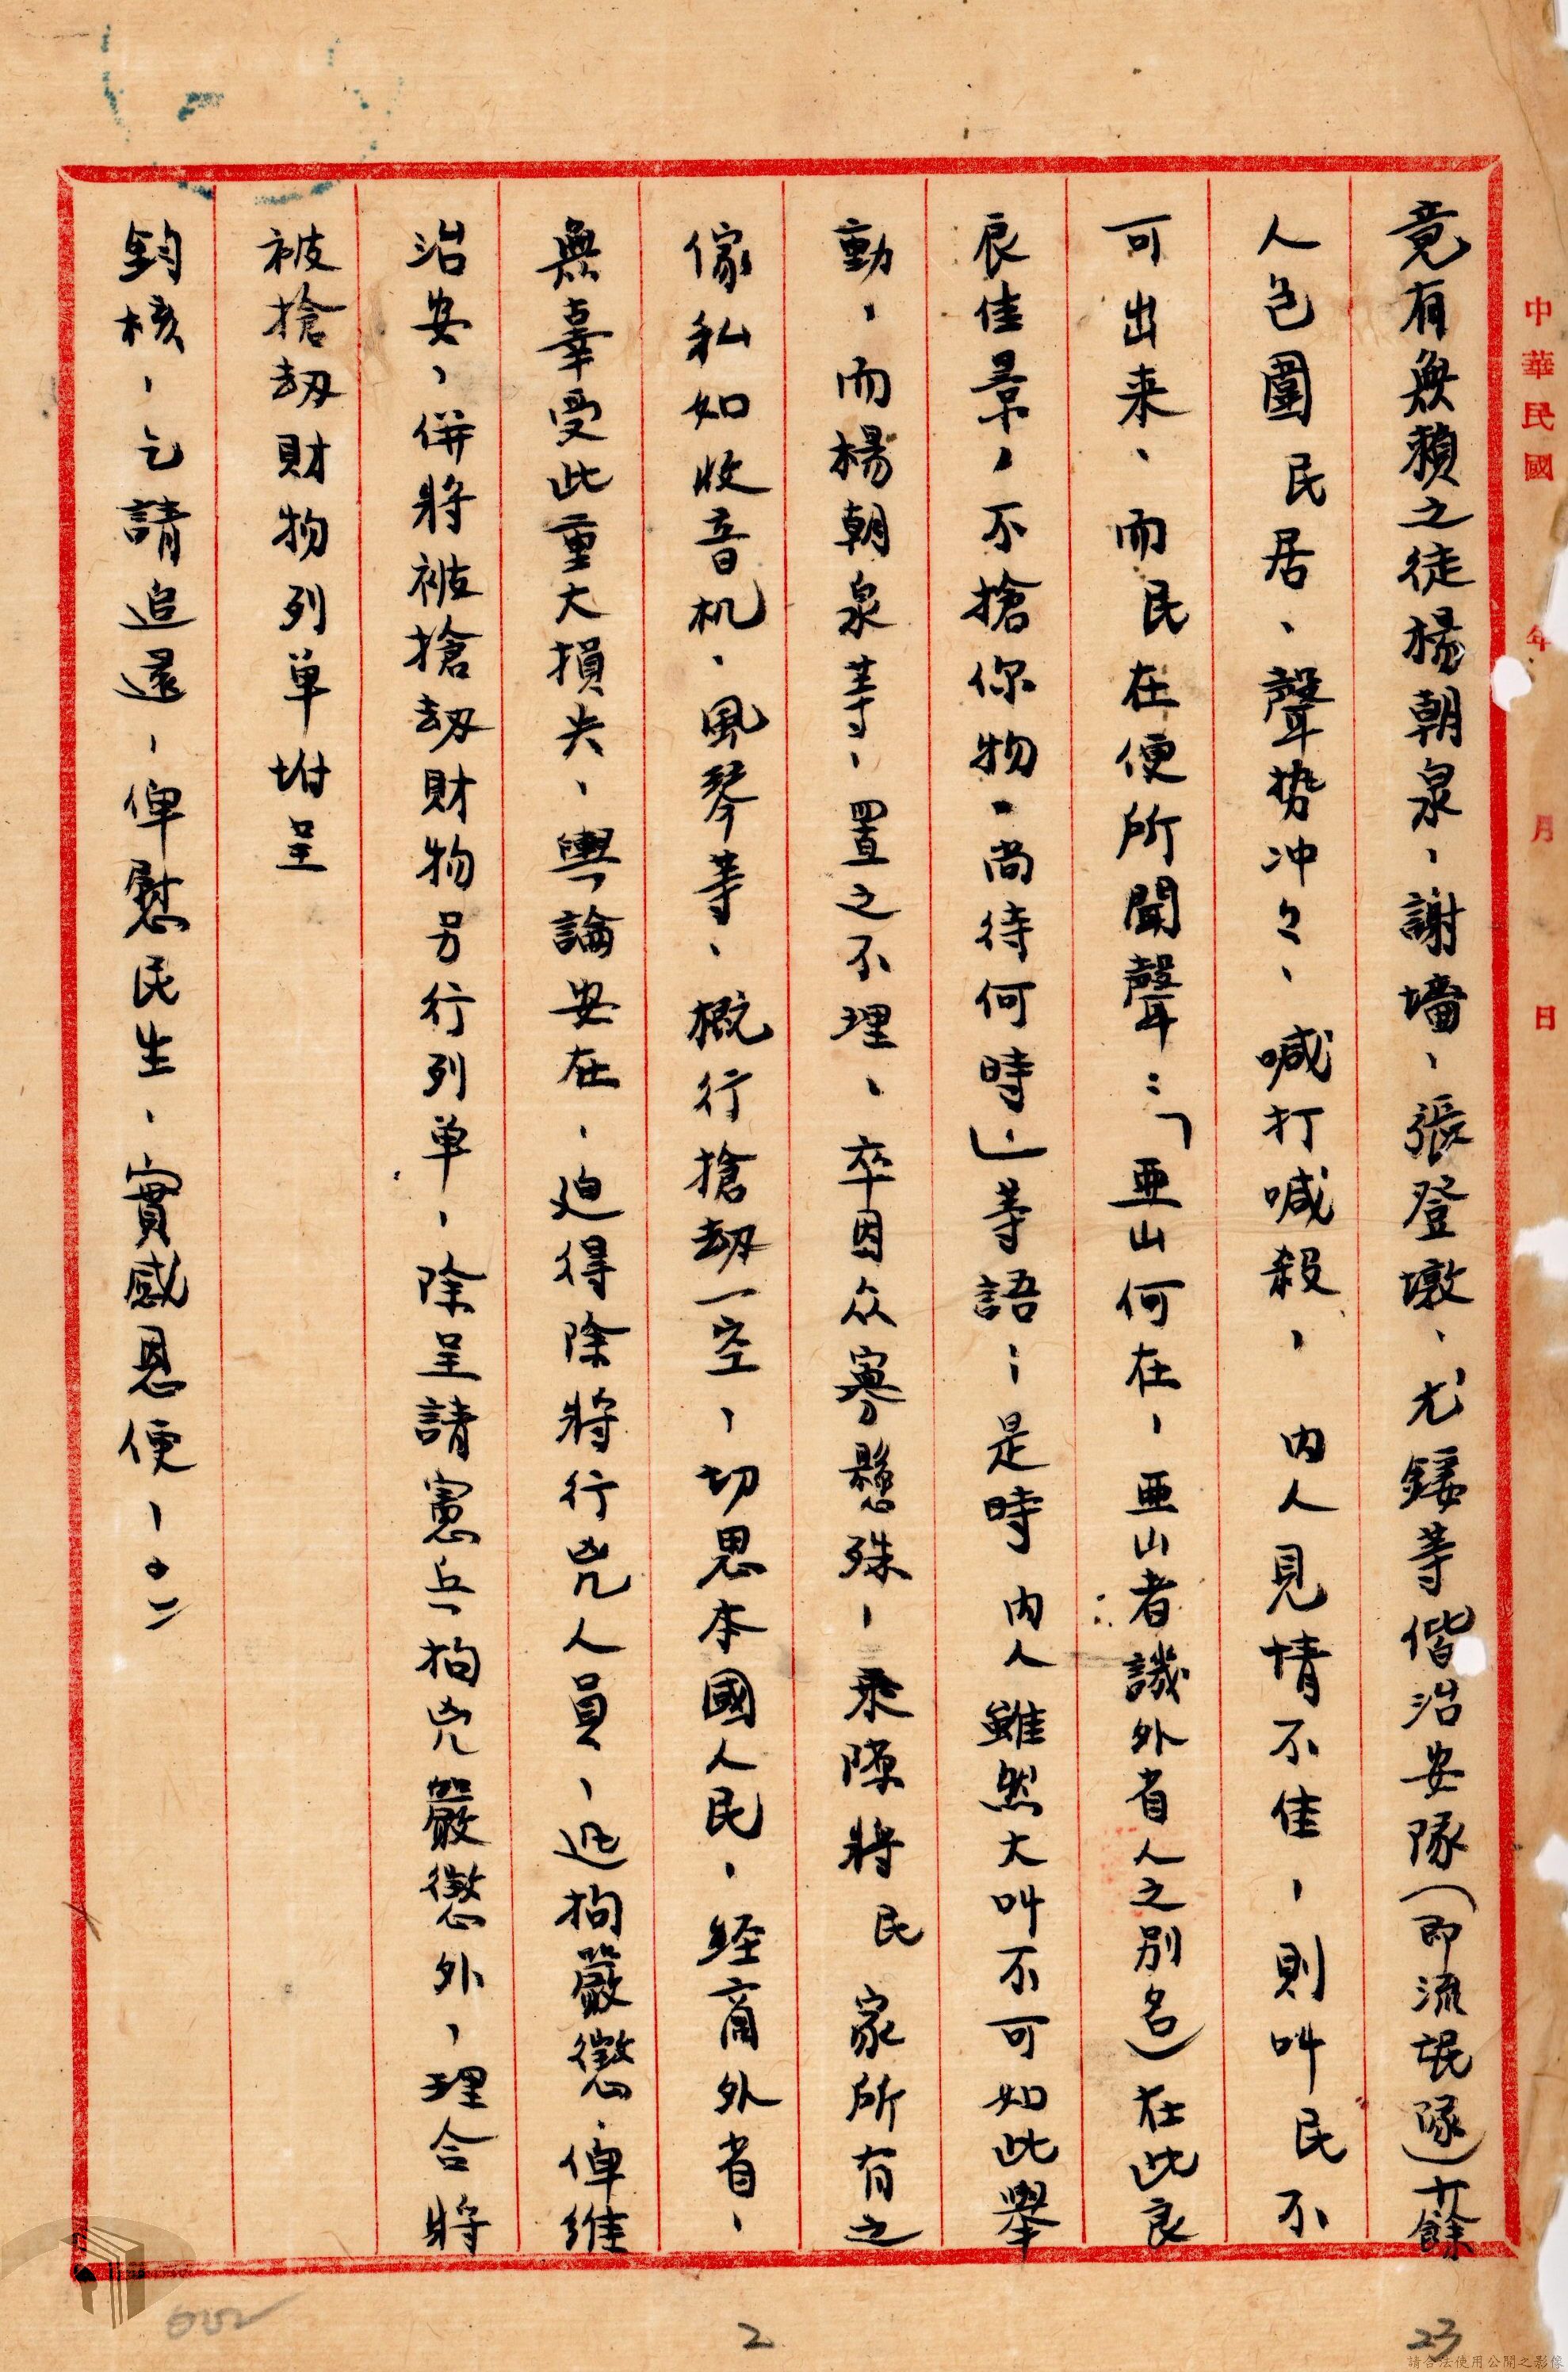 中華民國 年 月 日
竟有無賴之徒楊朝泉、謝墻、張登墩、尤鋖等偕治安隊(即流氓隊)十餘
人包圍 民居、聲势冲々、喊打喊殺、 内人見情不佳、則叫 民不
可出来、而 民在便所聞聲:「亜山何在、亜山者譏外省人之別名)在此良
辰佳景、不搶你物、尚待何時」等語;是時 内人雖然大叫不可如此舉
動、而楊朝泉等、置之不理、卒因众寡懸殊、乘隙將 民 家所有之
傢私如收音机、風琴等、概行搶刼一空、切思本國人民、経商外省、
無辜受此重大損失、輿論安在、迫得除將行兇人員、迅拘嚴懲、俾維
治安、併將被搶刼財物另行列单、除呈請憲兵拘兇嚴懲外、理合將
被搶刼財物列单坿呈
鈞核、乞請追還、俾慰民生、實感恩便、
23
2
請合法使用公開之影像